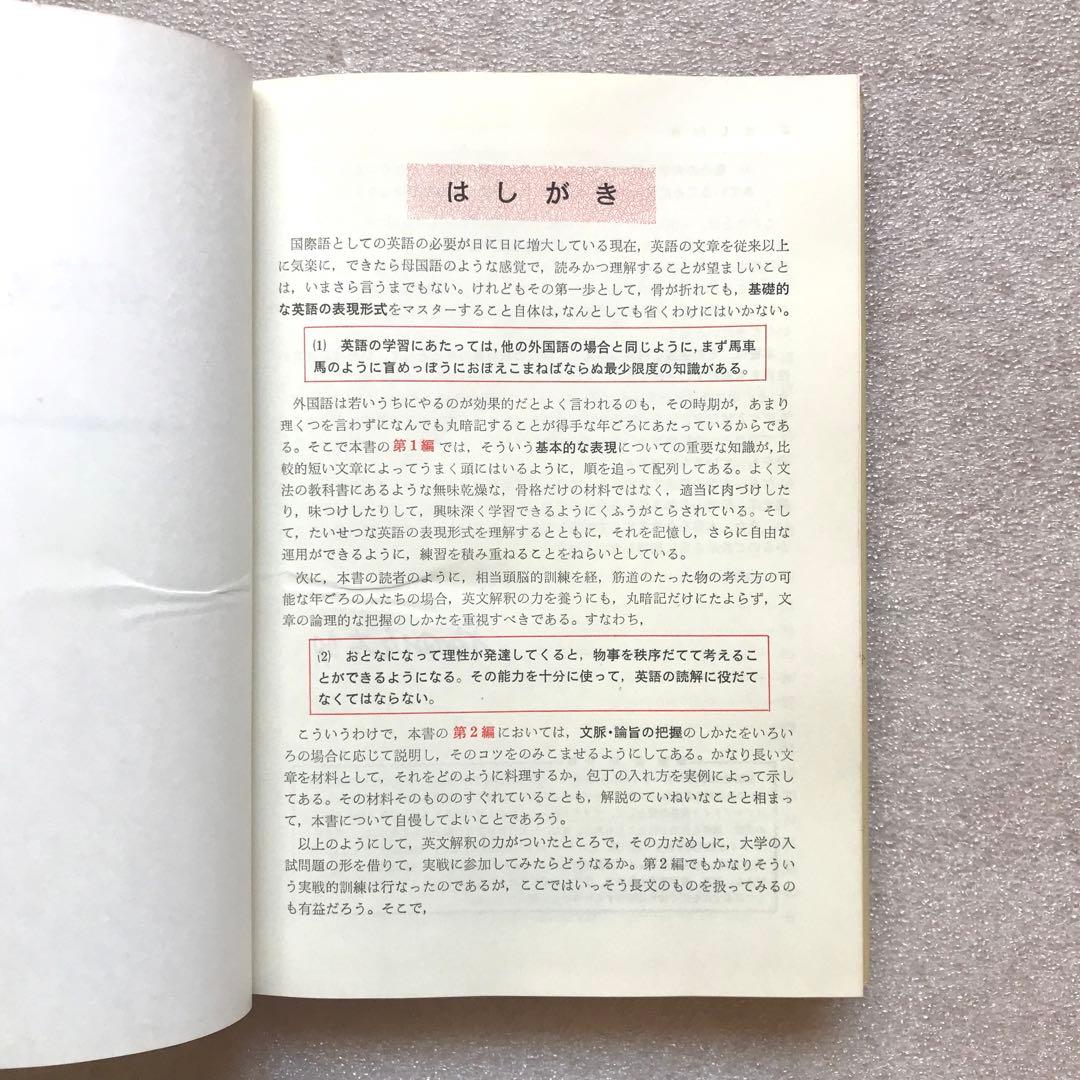 はしがき
国際語としての英語の必要が日に日に増大している現在，英語の文章を従来以上
に気楽に，できたら母国語のような感覚で，読みかつ理解することが望ましいこと
は，いまさら言うまでもない。けれどもその第一歩として，骨が折れても，基礎的
な英語の表現形式をマスターすること自体は，なんとしても省くわけにはいかない。
(1)　英語の学習にあたっては，他の外国語の場合と同じように，まず馬車
馬のように盲めっぽうにおぼえこまねばならぬ最少限度の知識がある。
外国語は若いうちにやるのが効果的だとよく言われるのも，その時期が，あまり
理くつを言わずになんでも丸暗記することが得手な年ごろにあたっているからであ
る。そこで本書の第1編では，そういう基本的な表現についての重要な知識が，比
較的短い文章によってうまく頭にはいるように，順を追って配列してある。よく文
法の教科書にあるような無味乾燥な，骨格だけの材料ではなく，適当に肉づけした
り，味つけしたりして，興味深く学習できるようにくふうがこらされている。そし
て，たいせつな英語の表現形式を理解するとともに，それを記憶し，さらに自由な
運用ができるように，練習を積み重ねることをねらいとしている。
次に，本書の読者のように，相当頭脳的訓練を経，筋道のたった物の考え方の可
能な年ごろの人たちの場合，英文解釈の力を養うにも，丸暗記だけにたよらず，文
章の論理的な把握のしかたを重視すべきである。すなわち，
(2)　おとなになって理性が発達してくると，物事を秩序だてて考えるこ
とができるようになる。その能力を十分に使って，英語の読解に役だて
なくてはならない。
こういうわけで，本書の第2編においては，文脈・論旨の把握のしかたをいろい
ろの場合に応じて説明し，そのコツをのみこませるようにしてある。かなり長い文
章を材料として，それをどのように料理するか，包丁の入れ方を実例によって示し
てある。その材料そのもののすぐれていることも，解説のていねいなことと相まっ
て，本書について自慢してよいことであろう。
以上のようにして，英文解釈の力がついたところで，その力だめしに，大学の入
試問題の形を借りて，実戦に参加してみたらどうなるか。第2編でもかなりそうい
う実戦的訓練は行なったのであるが，ここではいっそう長文のものを扱ってみるの
も有益だろう。そこで，